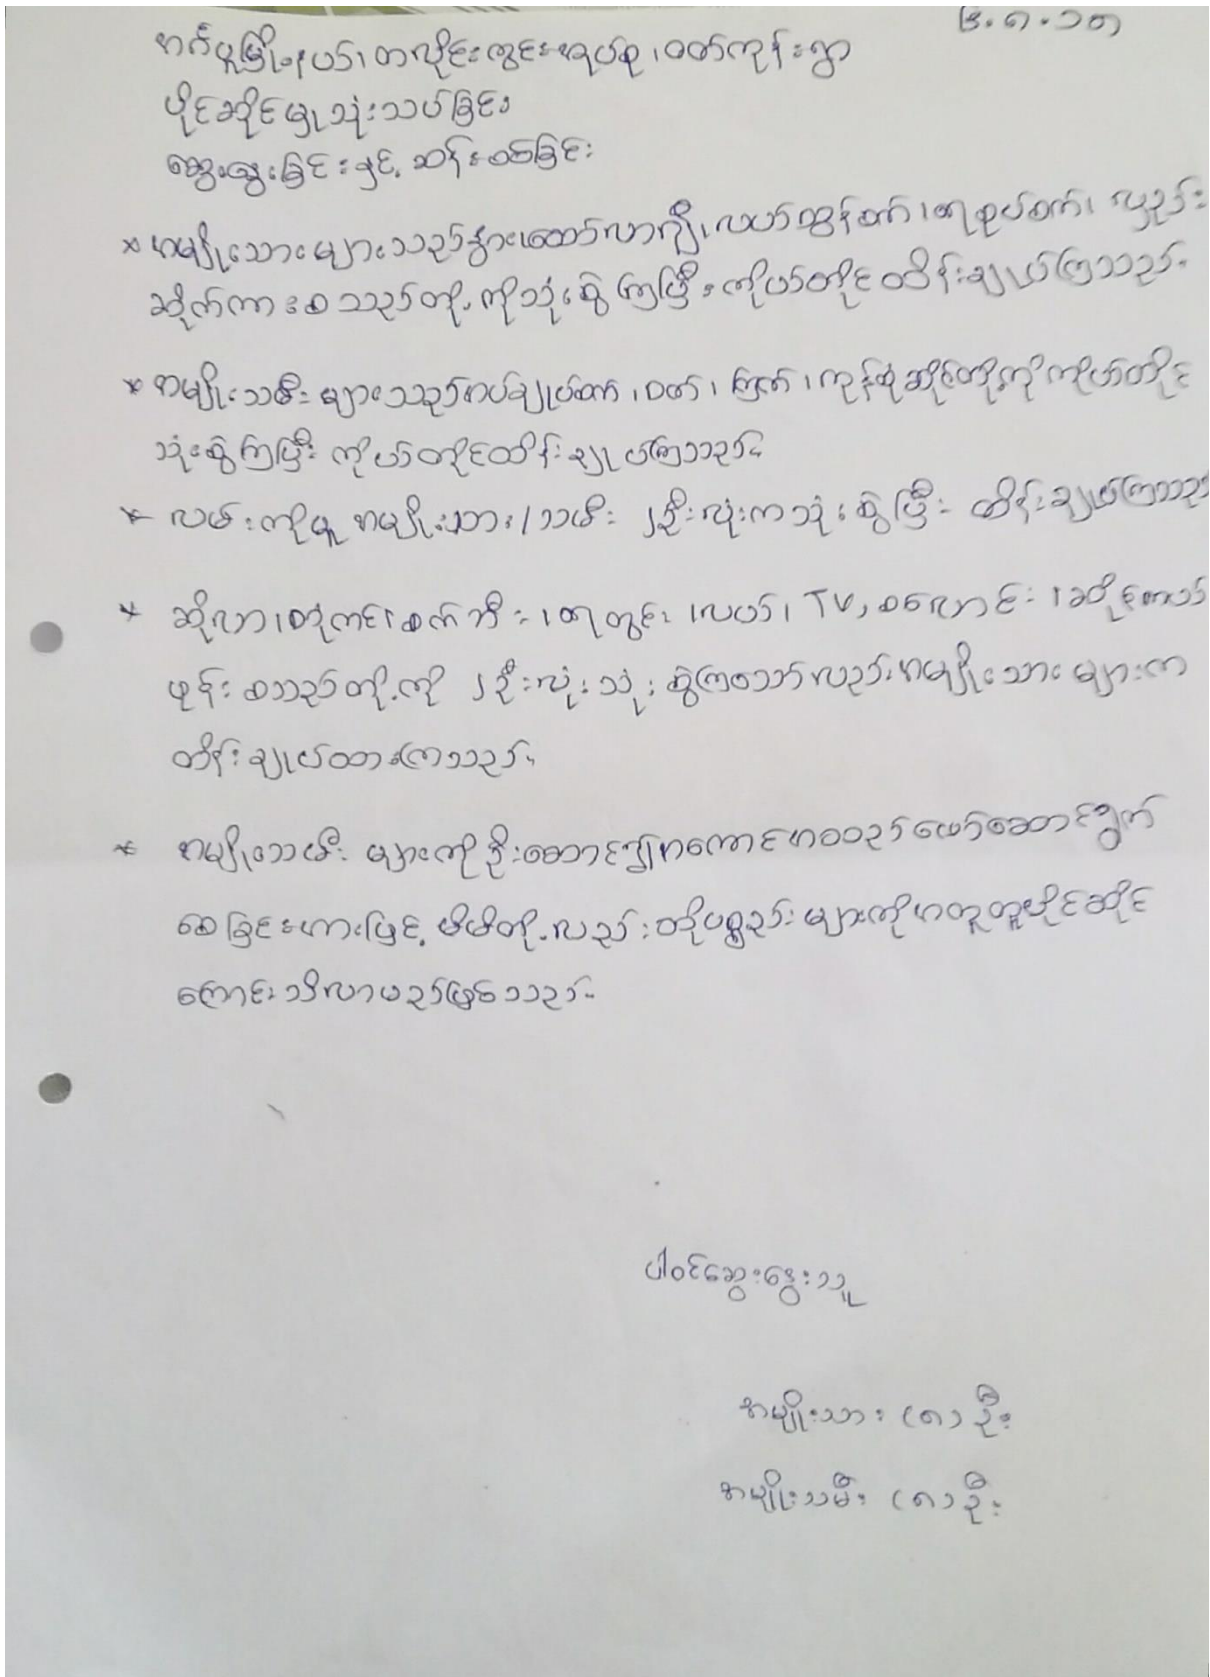 ၆.၈.၁၈
အင်္ဂပူမြို့နယ်၊ တလိုင်းကွင်းအုပ်စု၊ ဝတ်ကုန်းရွာ
ပိုင်ဆိုင်မှု သုံးသပ်ခြင်း
ဆွေးနွေးခြင်းနှင့် ဆန်းစစ်ခြင်း
* အမျိုးသားများသည် နွား၊ ထော်လာဂျီ၊ လယ်ထွန်စက်၊ ရေစုပ်စက်၊ လှည်း
ဆိုက်ကား စသည်တို့ကိုသုံးစွဲကြပြီး ကိုယ်တိုင်ထိန်းချုပ်ကြသည်။
* အမျိုးသမီးများသည် အပ်ချုပ်စက်၊ ဝက်၊ ကြက်၊ ကုန်စုံဆိုင်တို့ကို ကိုယ်တိုင်
သုံးစွဲကြပြီး ကိုယ်တိုင်ထိန်းချုပ်ကြသည်။
* လမ်းကိုမူ အမျိုးသား/သမီး ၂ဦးလုံးကသုံးစွဲပြီး ထိန်းချုပ်ကြသည်
* ဆိုလာ၊ ဆိုင်ကယ်၊ စက်ဘီး၊ ရေတွင်း၊ လယ်၊ TV, စလောင်း၊
ဖုန်း စသည်တို့ကို ၂ဦးလုံးသုံးစွဲကြသော်လည်း အမျိုးသားများက
ထိန်းချုပ်ထားကြသည်။
* အမျိုးသမီးများကို ဦးဆောင်၍ အကောင်အထည်ဖော်ဆောင်ရွက်
စေခြင်းအားဖြင့် မိမိတို့လည်း ထိုပစ္စည်းများကို အတူတူပိုင်ဆိုင်
ကြောင်း သိလာမည်ဖြစ်သည်။
ပါဝင်ဆွေးနွေးသူ
အမျိုးသား (၈) ဦး
အမျိုးသမီး (၈) ဦး